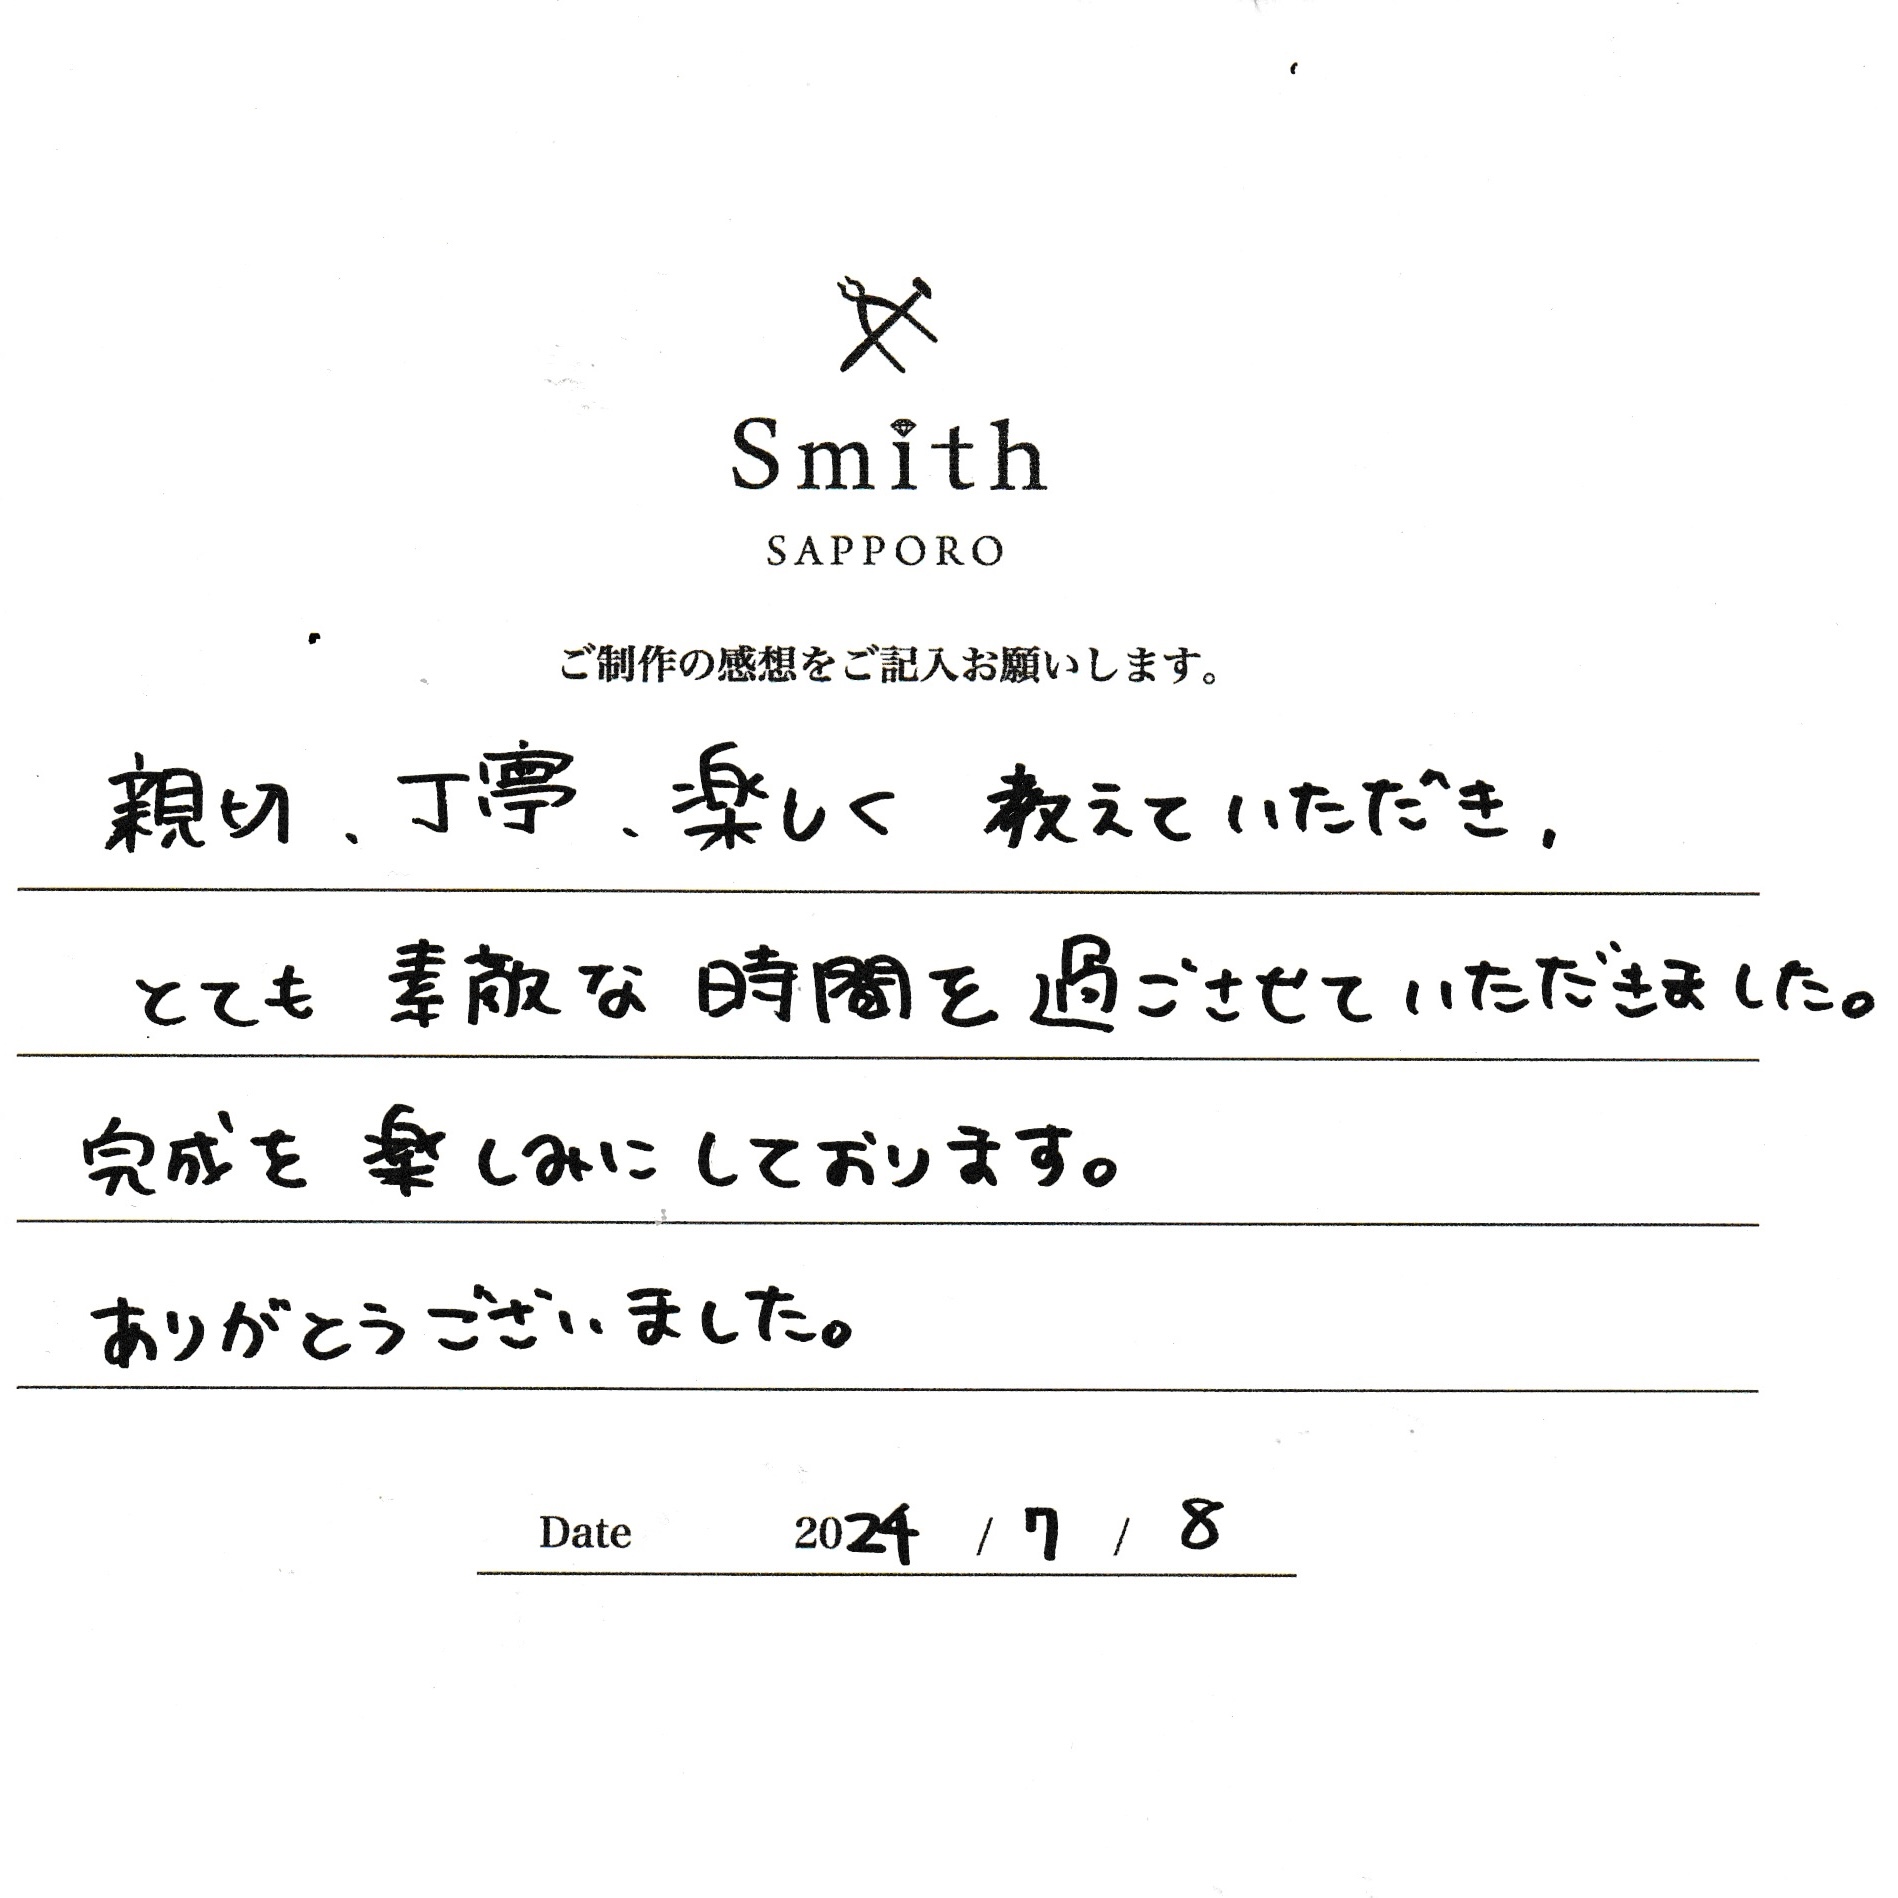 Smith
SAPPORO
ご制作の感想をご記入お願いします。
親切、丁寧、楽しく 教えていただき、
とても 素敵な 時間を 過ごさせていただきました。
完成を 楽しみに しております。
ありがとうございました。
Date 2024 / 7 / 8